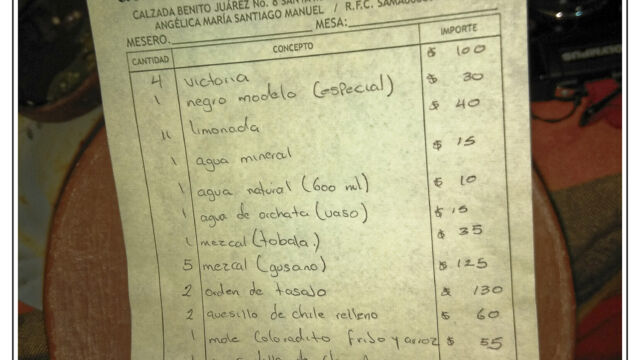 CALZADA BENITO JUÁREZ No. 8
ANGÉLICA MARÍA SANTIAGO MANUEL / R.F.C.
MESERO. MESA:
CANTIDAD CONCEPTO IMPORTE
4 victoria $ 100
1 negro modelo (especial) $ 30
limonada $ 40
1 agua mineral $ 15
1 agua natural (600 ml) $ 10
1 agua de orchata (vaso) $ 15
1 mezcal (tobala.) $ 35
5 mezcal (gusano) $ 125
2 orden de tasajo $ 130
2 quesillo de chile relleno $ 60
1 mole coloradito frijo y arroz $ 55